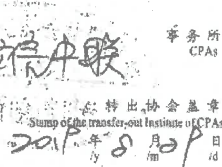 事务所
CPAs
中联
转出协会盖章
Stamp of the transfer-out Institute of CPAs
2019年8月 日
/y /m /d